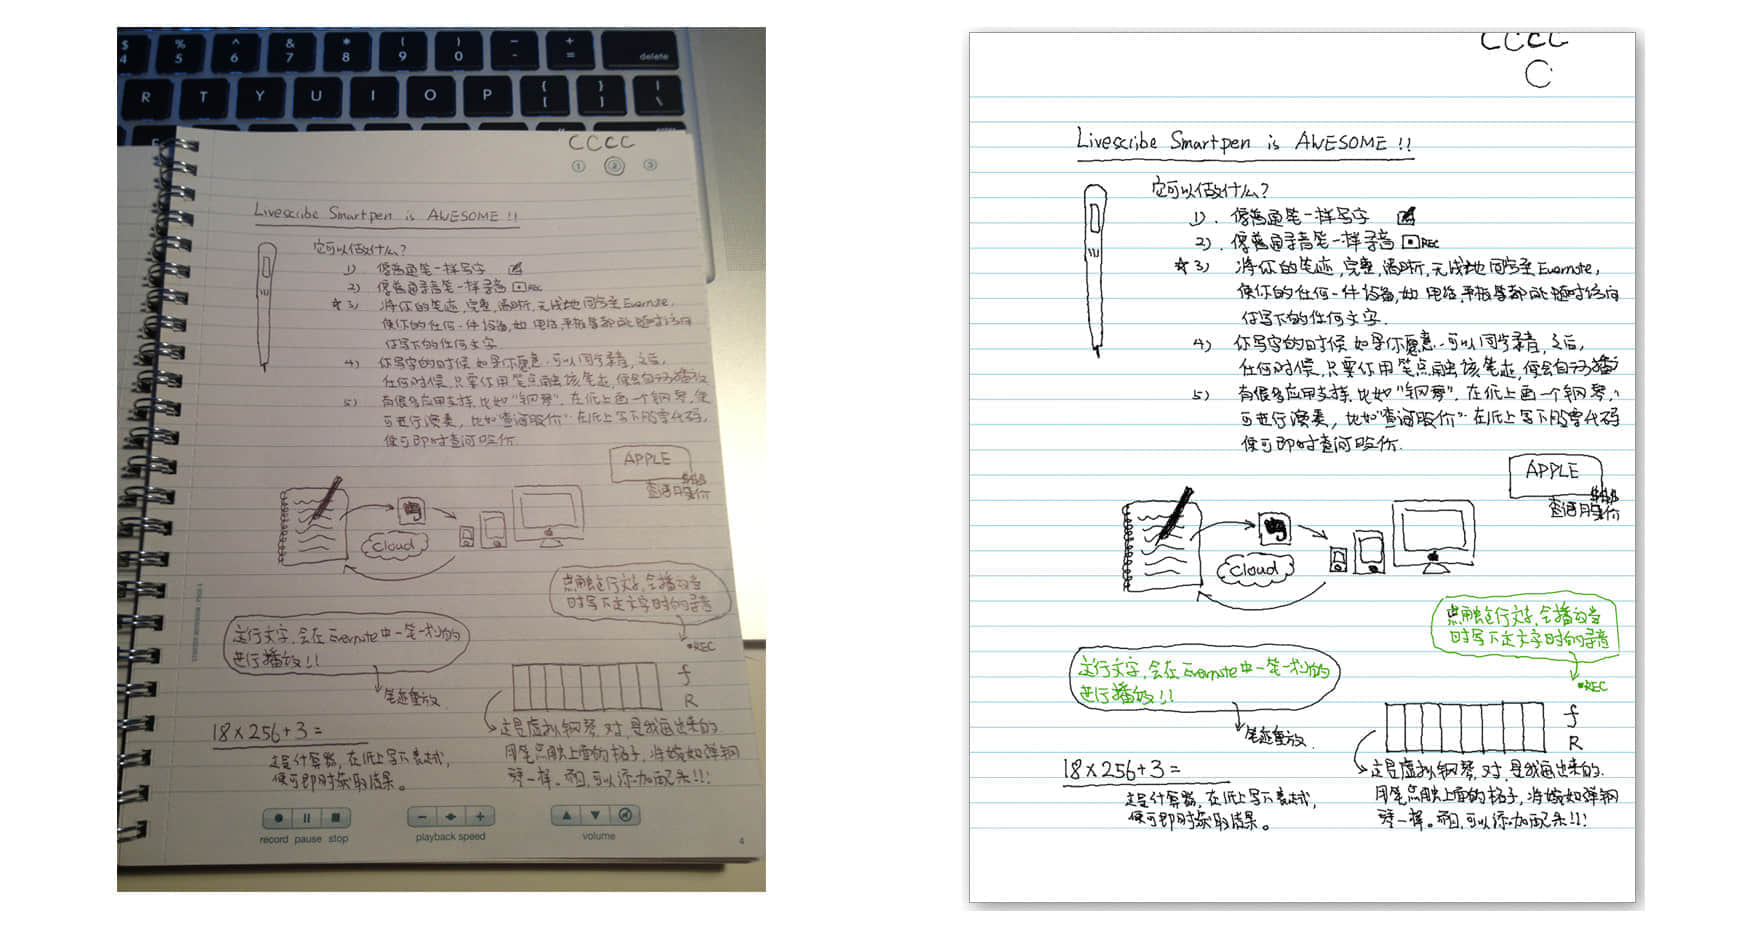 $ % ^ & * ( ) - +
4 5 6 7 8 9 0 - = delete
R T Y U I O P { [ } ] | \
CCCC
1 2 3
Livescribe Smartpen is AWESOME !!
它可以做什么?
1) 像普通笔一样写字
2) 像普通录音笔一样录音 REC
☆3) 将你的笔迹,完整,清晰,无线地同步至Evernote,
使你的任何一件设备,如电脑,平板等都能随时访问
你写下的任何文字.
4) 你写字的时候如果你愿意.可以同步录音,之后,
任何时候,只要你用笔点触该笔迹,便会自动播放
5) 有很多应用支持.比如"钢琴".在纸上画一个钢琴,便
可进行演奏,比如"查询股价".在纸上写下股票代码,
便可即时查询股价.
APPLE
查询股价
Cloud
点触这行文字,会播放当
时写下这文字时的录音
•REC
这行文字,会在Evernote中一笔一划的
进行播放!!
笔迹重放
f
R
18×256+3=
这是计算器,在纸上写下表达式,
便可即时获取结果。
这是虚拟钢琴,对,是我画出来的.
用笔点触上面的格子,将犹如弹钢
琴一样。而且,可以添加配乐!!!
record pause stop
playback speed
volume
4
CCCC
C
Livescribe Smartpen is AWESOME !!
它可以做什么?
1). 像普通笔一样写字
2). 像普通录音笔一样录音 REC
☆3) 将你的笔迹,完整,清晰,无线地同步至Evernote,
使你的任何一件设备,如电脑,平板等都能随时访问
你写下的任何文字.
4) 你写字的时候如果你愿意.可以同步录音,之后,
任何时候,只要你用笔点触该笔迹,便会自动播
5) 有很多应用支持.比如"钢琴".在纸上画一个钢琴,
可进行演奏,比如"查询股价".在纸上写下股票代码
便可即时查询股价.
APPLE
查询股价
Cloud
点触这行文字,会播放当
时写下这文字时的录音
•REC
这行文字,会在Evernote中一笔一划的
进行播放!!
笔迹重放.
f
R
18×256+3=
这是计算器,在纸上写下表达式,
便可即时获取结果。
这是虚拟钢琴,对,是我画出来的.
用笔点触上面的格子,将犹如弹钢
琴一样。而且,可以添加配乐!!!